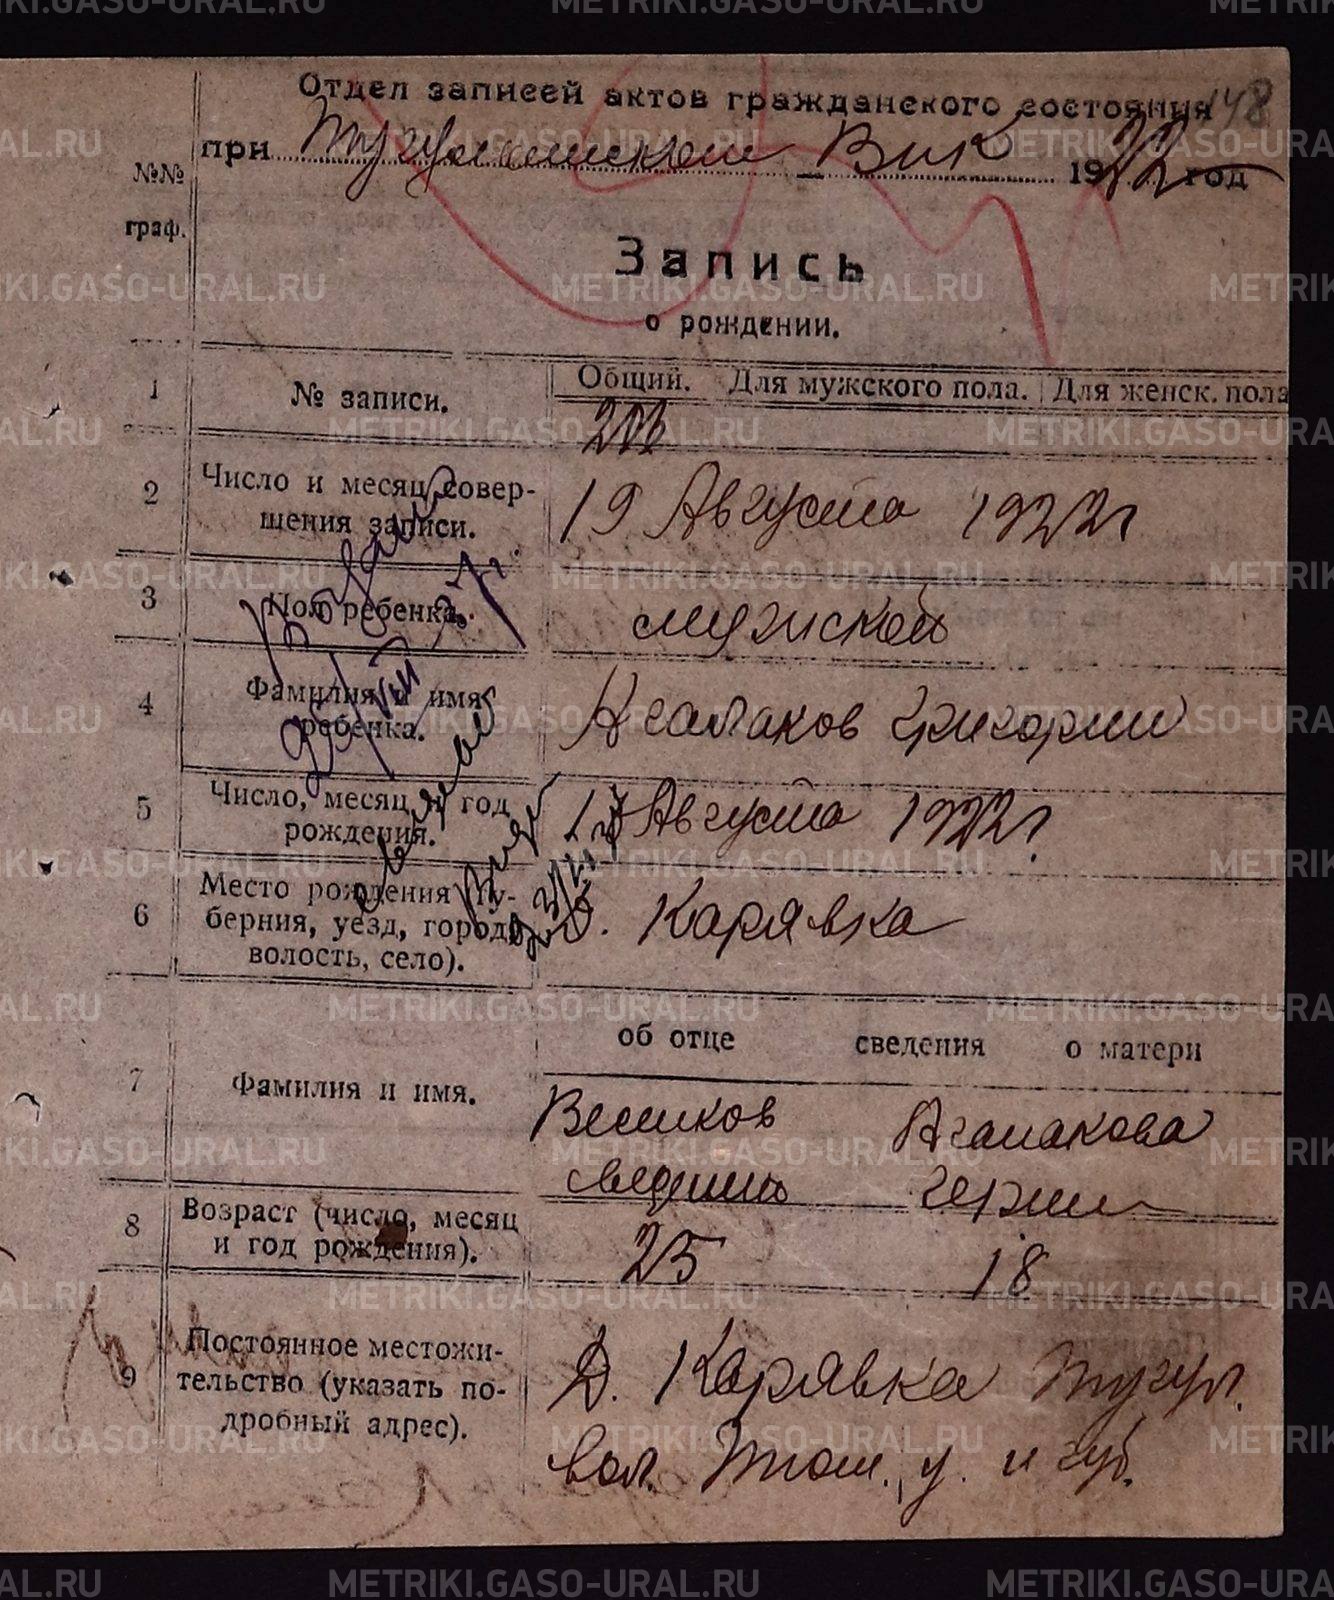 Отдел записей актов гражданского состояния 148
при Тугулымском Вик 1922 год
№№
граф.
Запись
о рождении.
1 № записи. Общий. Для мужского пола. Для женск. пола
2 Число и месяц совер-
шения записи.
19 Августа 1922 г
3 Пол ребенка.
мужской
4 Фамилия и имя
ребенка.
Агалаков Григорий
5 Число, месяц и год
рождения.
Августа 1922 г.
6 Место рождения (гу-
берния, уезд, город,
волость, село).
д. Карявка
об отце сведения о матери
7 Фамилия и имя.
Агалакова
8 Возраст (число, месяц
и год рождения).
25 18
9 Постоянное местожи-
тельство (указать по-
дробный адрес).
Д. Карявка Тугул.
вол. Тюм. у. и губ.
METRIKI.GASO-URAL.RU